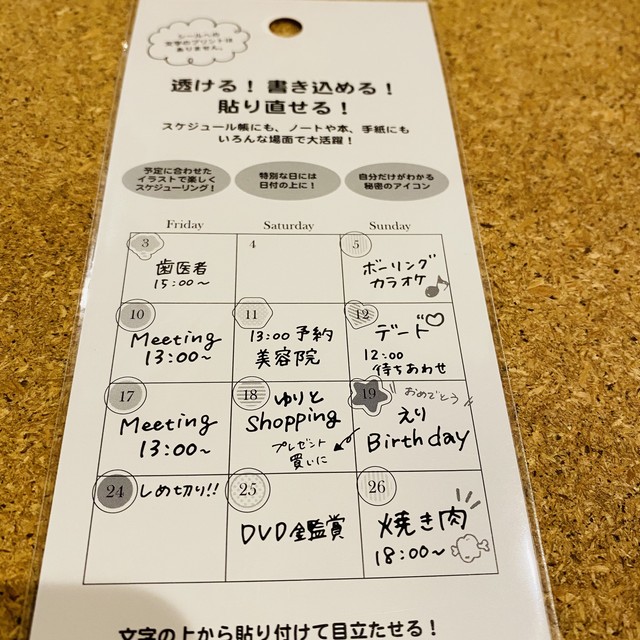 シールへの
文字のプリントは
ありません。
透ける！書き込める！
貼り直せる！
スケジュール帳にも、ノートや本、手紙にも
いろんな場面で大活躍！
予定に合わせた
イラストで楽しく
スケジューリング！
特別な日には
日付の上に！
自分だけがわかる
秘密のアイコン
Friday Saturday Sunday
3
歯医者
15:00~
4
5
ボーリング
カラオケ
10
Meeting
13:00~
11
13:00 予約
美容院
12
デート
12:00
待ちあわせ
17
Meeting
13:00~
18 ゆりと
Shopping
プレゼント
買いに
19 おめでとう
えり
Birthday
24 しめ切り!!
25
DVD鑑賞
26
焼き肉
18:00~
文字の上から貼り付けて目立たせる！